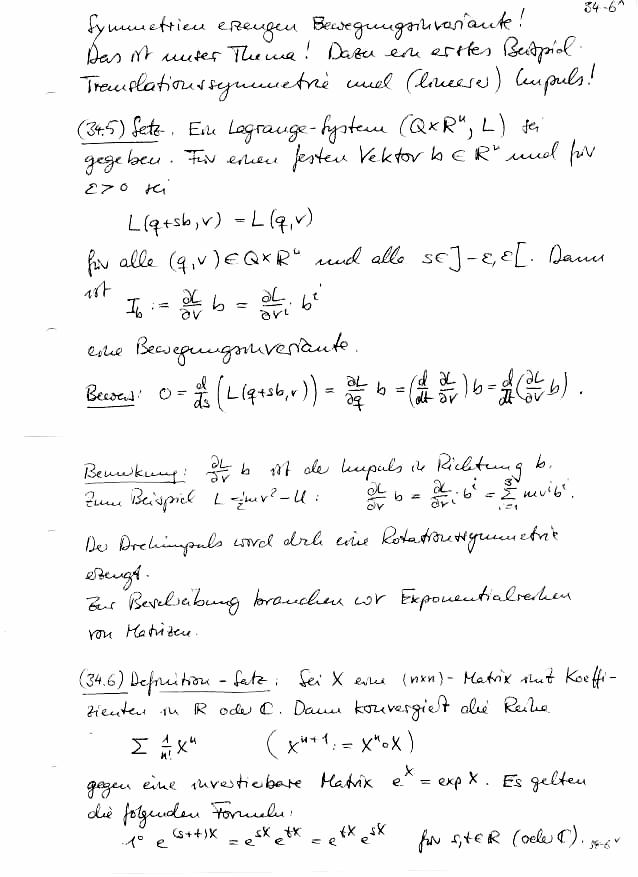 34-6^
Symmetrien erzeugen Bewegungsinvariante!
Das ist unser Thema! Dazu ein erstes Beispiel.
Translationssymmetrie und (linearer) Impuls!
(34.5) Satz. Ein Lagrange-System (Q×ℝⁿ, L) sei
gegeben. Für einen festen Vektor b ∈ ℝⁿ und für
ε > 0 sei
L(q+sb,v) = L(q,v)
für alle (q,v) ∈ Q×ℝⁿ und alle s∈]-ε,ε[. Dann
ist I_b := ∂L/∂v b = ∂L/∂vⁱ · bⁱ
eine Bewegungsinvariante.
Beweis: 0 = d/ds (L(q+sb,v)) = ∂L/∂q b = (d/dt ∂L/∂v) b = d/dt (∂L/∂v b).
Bemerkung: ∂L/∂v b ist der Impuls in Richtung b.
Zum Beispiel L = ½mv² - U : ∂L/∂v b = ∂L/∂vⁱ · bⁱ = Σ_{i=1}^{3} mvⁱbⁱ.
Der Drehimpuls wird durch eine Rotationssymmetrie
erzeugt.
Zur Beschreibung brauchen wir Exponentialreihen
von Matrizen.
(34.6) Definition - Satz : Sei X eine (n×n)-Matrix mit Koeffi-
zienten in ℝ oder ℂ. Dann konvergiert die Reihe
Σ 1/n! Xⁿ (Xⁿ⁺¹ := Xⁿ∘X)
gegen eine invertierbare Matrix e^X = exp X. Es gelten
die folgenden Formeln:
1° e^{(s+t)X} = e^{sX} e^{tX} = e^{tX} e^{sX} für s,t∈ℝ (oder ℂ). 34-6v